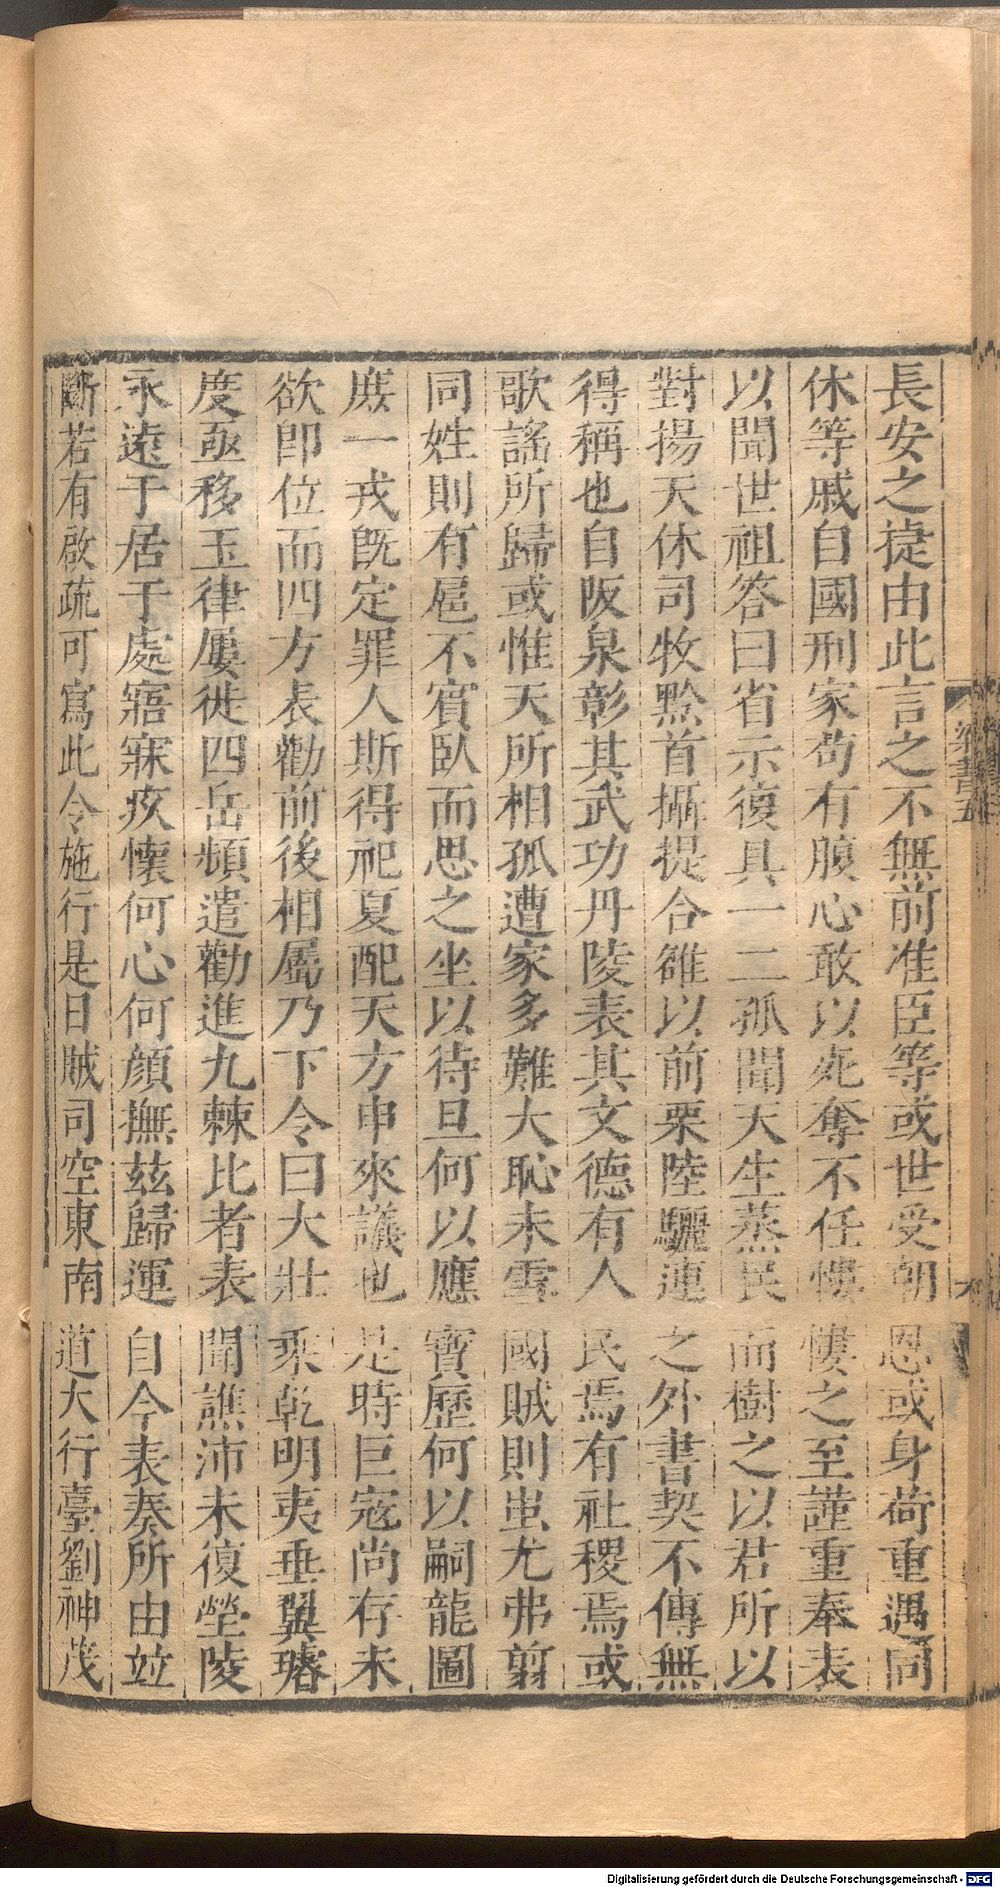 長安之捷由此言之不無前准臣等或世受朝恩或身荷重遇同
休等戚自國刑家苟有腹心敢以死奪不任慺慺之至謹重奉表
以聞世祖答曰省示復具一二孤聞天生蒸民而樹之以君所以
對揚天休司牧黔首攝提合雒以前栗陸驪連之外書契不傳無
得稱也自阪泉彰其武功丹陵表其文德有人民焉有社稷焉或
歌謠所歸或惟天所相孤遭家多難大恥未雪國賊則蚩尤弗翦
同姓則有扈不賓臥而思之坐以待旦何以應寶歷何以嗣龍圖
庶一戎旣定罪人斯得祀夏配天方申來議也是時巨寇尚存未
欲卽位而四方表勸前後相屬乃下令曰大壯乘乾明夷垂翼璿
度亟移玉律屢徙四岳頻遣勸進九棘比者表聞譙沛未復塋陵
永遠于居于處寤寐疚懷何心何顏撫玆歸運自今表奏所由竝
斷若有啟疏可寫此令施行是日賊司空東南道大行臺劉神茂
梁書五
Digitalisierung gefördert durch die Deutsche Forschungsgemeinschaft - DFG